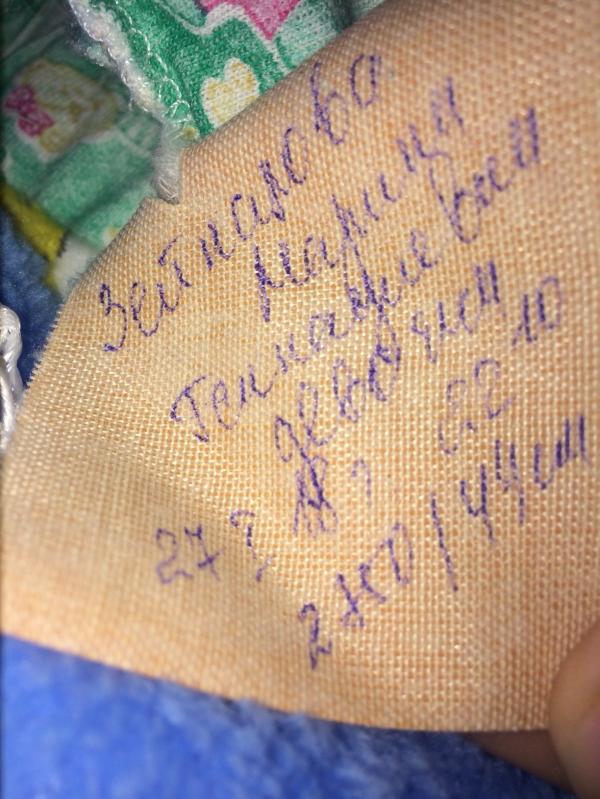 Зейтназова
Марина
Геннадиевна
девочка
22 10
27 2 18 г.
2750 / 44 см